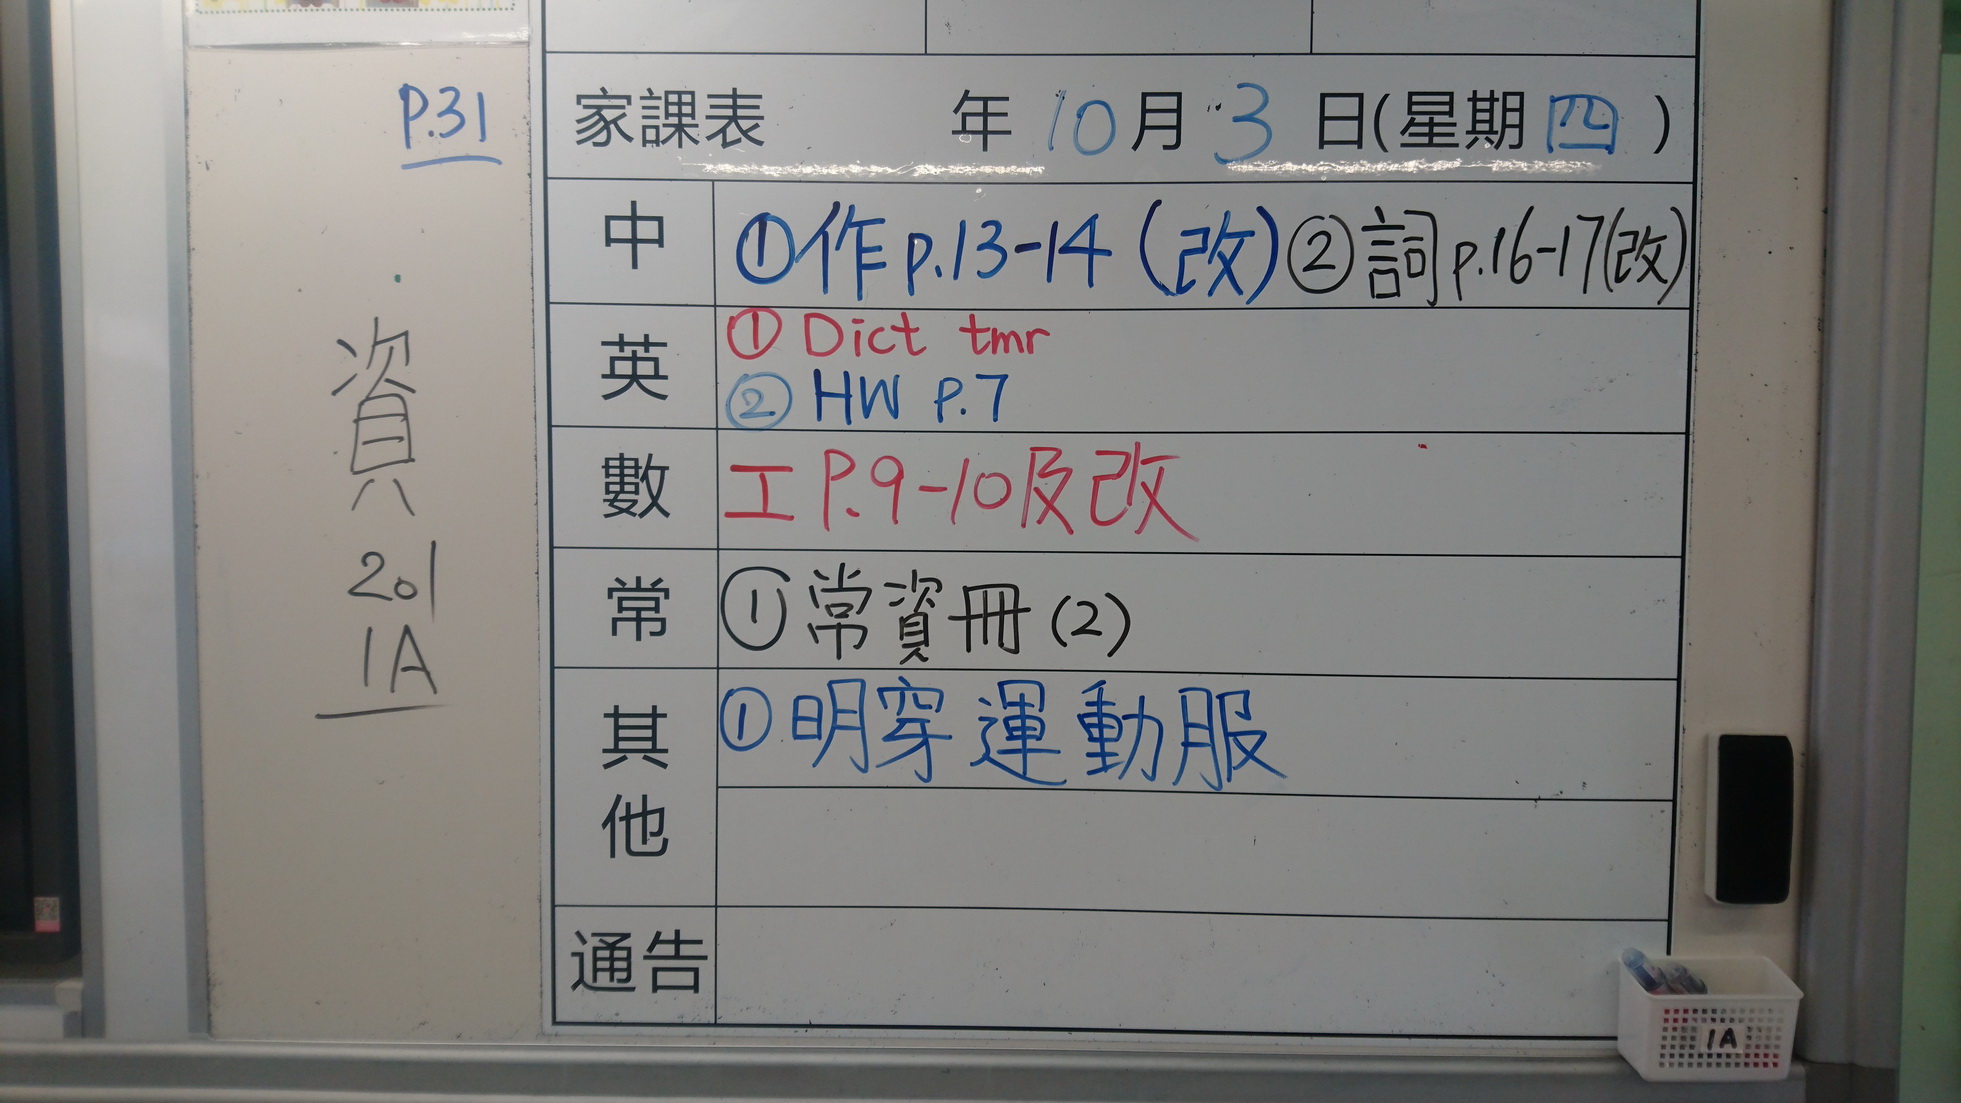 P.31
資
201
1A
家課表 年 10 月 3 日(星期 四 )
中 ①作 p.13-14 (改) ②詞 p.16-17(改)
英 ① Dict tmr
② HW P.7
數 工 P.9-10及改
常 ①常資冊(2)
其他 ①明穿運動服
通告
1A